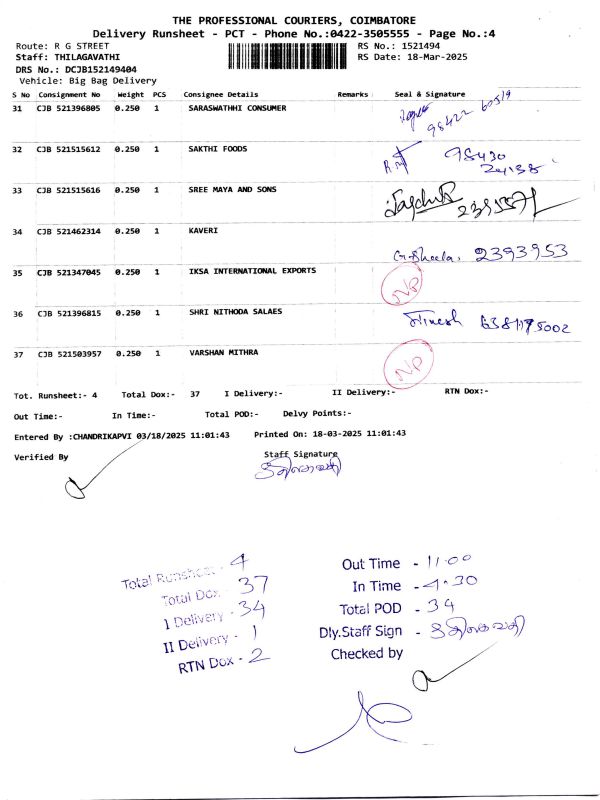 THE PROFESSIONAL COURIERS, COIMBATORE
Delivery Runsheet - PCT - Phone No.:0422-3505555 - Page No.:4
Route: R G STREET RS No.: 1521494
Staff: THILAGAVATHI RS Date: 18-Mar-2025
DRS No.: DCJB152149404
Vehicle: Big Bag Delivery
S No Consignment No Weight PCS Consignee Details Remarks Seal & Signature
31 CJB 521396805 0.250 1 SARASWATHHI CONSUMER
98422 60519
32 CJB 521515612 0.250 1 SAKTHI FOODS 98430
24138
33 CJB 521515616 0.250 1 SREE MAYA AND SONS
34 CJB 521462314 0.250 1 KAVERI
G. Sheela. 2393953
35 CJB 521347045 0.250 1 IKSA INTERNATIONAL EXPORTS
NP
36 CJB 521396815 0.250 1 SHRI NITHODA SALAES
37 CJB 521503957 0.250 1 VARSHAN MITHRA
NP
Tot. Runsheet:- 4 Total Dox:- 37 I Delivery:- II Delivery:- RTN Dox:-
Out Time:- In Time:- Total POD:- Delvy Points:-
Entered By :CHANDRIKAPVI 03/18/2025 11:01:43 Printed On: 18-03-2025 11:01:43
Verified By Staff Signature
திலகவதி
Total Runsheet - 4
Total Dox - 37
I Delivery - 34
II Delivery - 1
RTN Dox - 2
Out Time - 11.00
In Time - 4.30
Total POD - 34
Dly.Staff Sign - திலகவதி
Checked by